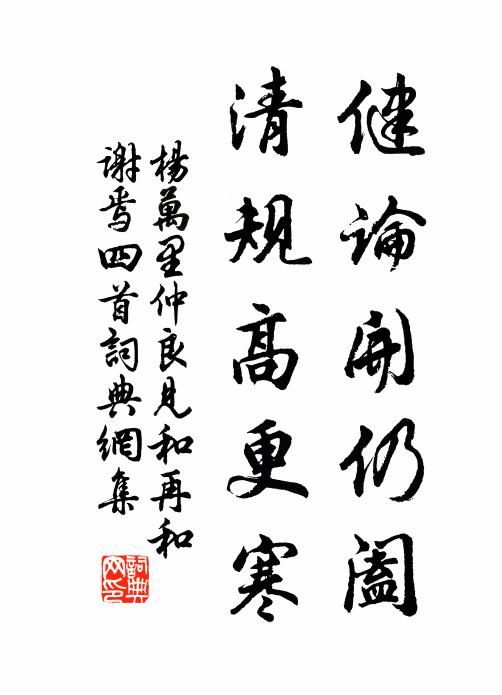 健論開仍闔
清規高更寒
楊萬里仲良見和再和
謝焉四首詞典網集
詞典網印